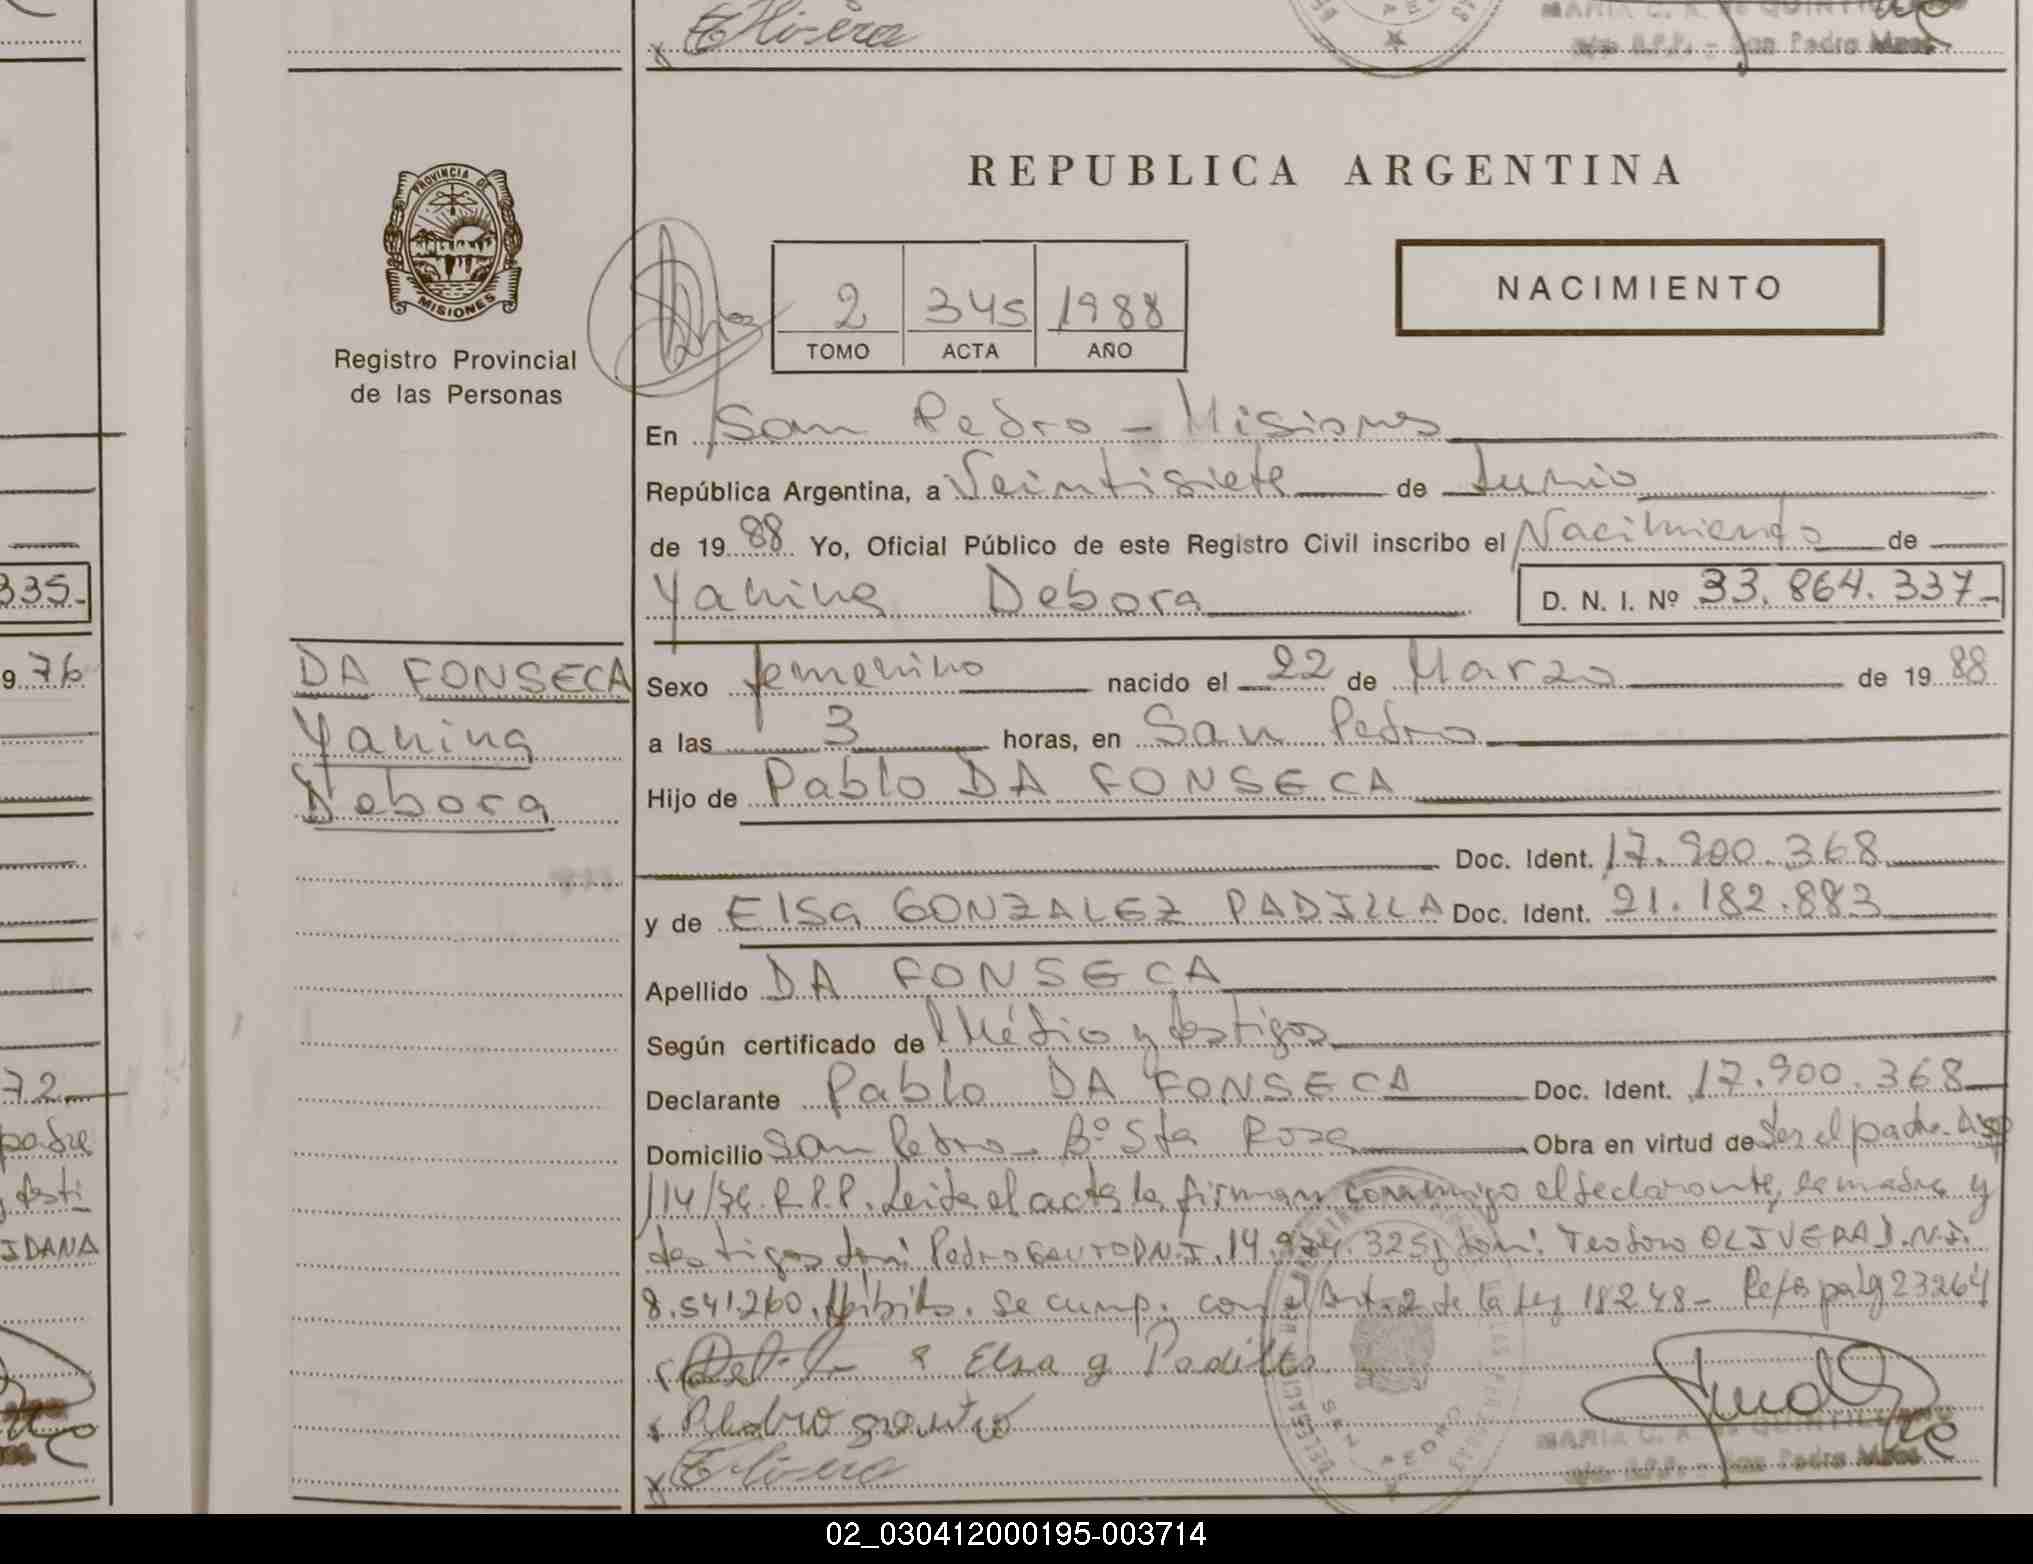 Olivera
MARIA C. R. de QUINTILL
San Pedro Mnes
PROVINCIA DE
MISIONES
Registro Provincial
de las Personas
REPUBLICA ARGENTINA
NACIMIENTO
2 345 1988
TOMO ACTA AÑO
En San Pedro - Misiones
República Argentina, a Veintisiete de Junio
de 1988 Yo, Oficial Público de este Registro Civil inscribo el Nacimiento de
Yanina Debora D. N. I. Nº 33.864.337-
335-
DA FONSECA
Yanina
Debora
9 76
Sexo femenino nacido el 22 de Marzo de 1988
a las 3 horas, en San Pedro
Hijo de Pablo DA FONSECA
Doc. Ident. 17.900.368
y de Elsa GONZALEZ PADILLA Doc. Ident. 21.182.883
Apellido DA FONSECA
Según certificado de Médico y testigos
Declarante Pablo DA FONSECA Doc. Ident. 17.900.368
72
Domicilio San Pedro - Bº Sta Rosa Obra en virtud de Ser el padre. Disp
padre
114/76. R.P.P. Leida el acta la firman conmigo el declarante, la madre y
testi
testigos don: Pedro GAUTO D.N.I. 14.974.325 y don: Teodoro OLIVERA D.N.I.
IDANA
8.541.260. Se cump. con el Art. 2 de la Ley 18248- 23264
Elsa g Padilla
Pedro gauto
Olivera
SAN PEDRO
MARIA C. R. de QUINTILL
San Pedro Mnes
02_030412000195-003714